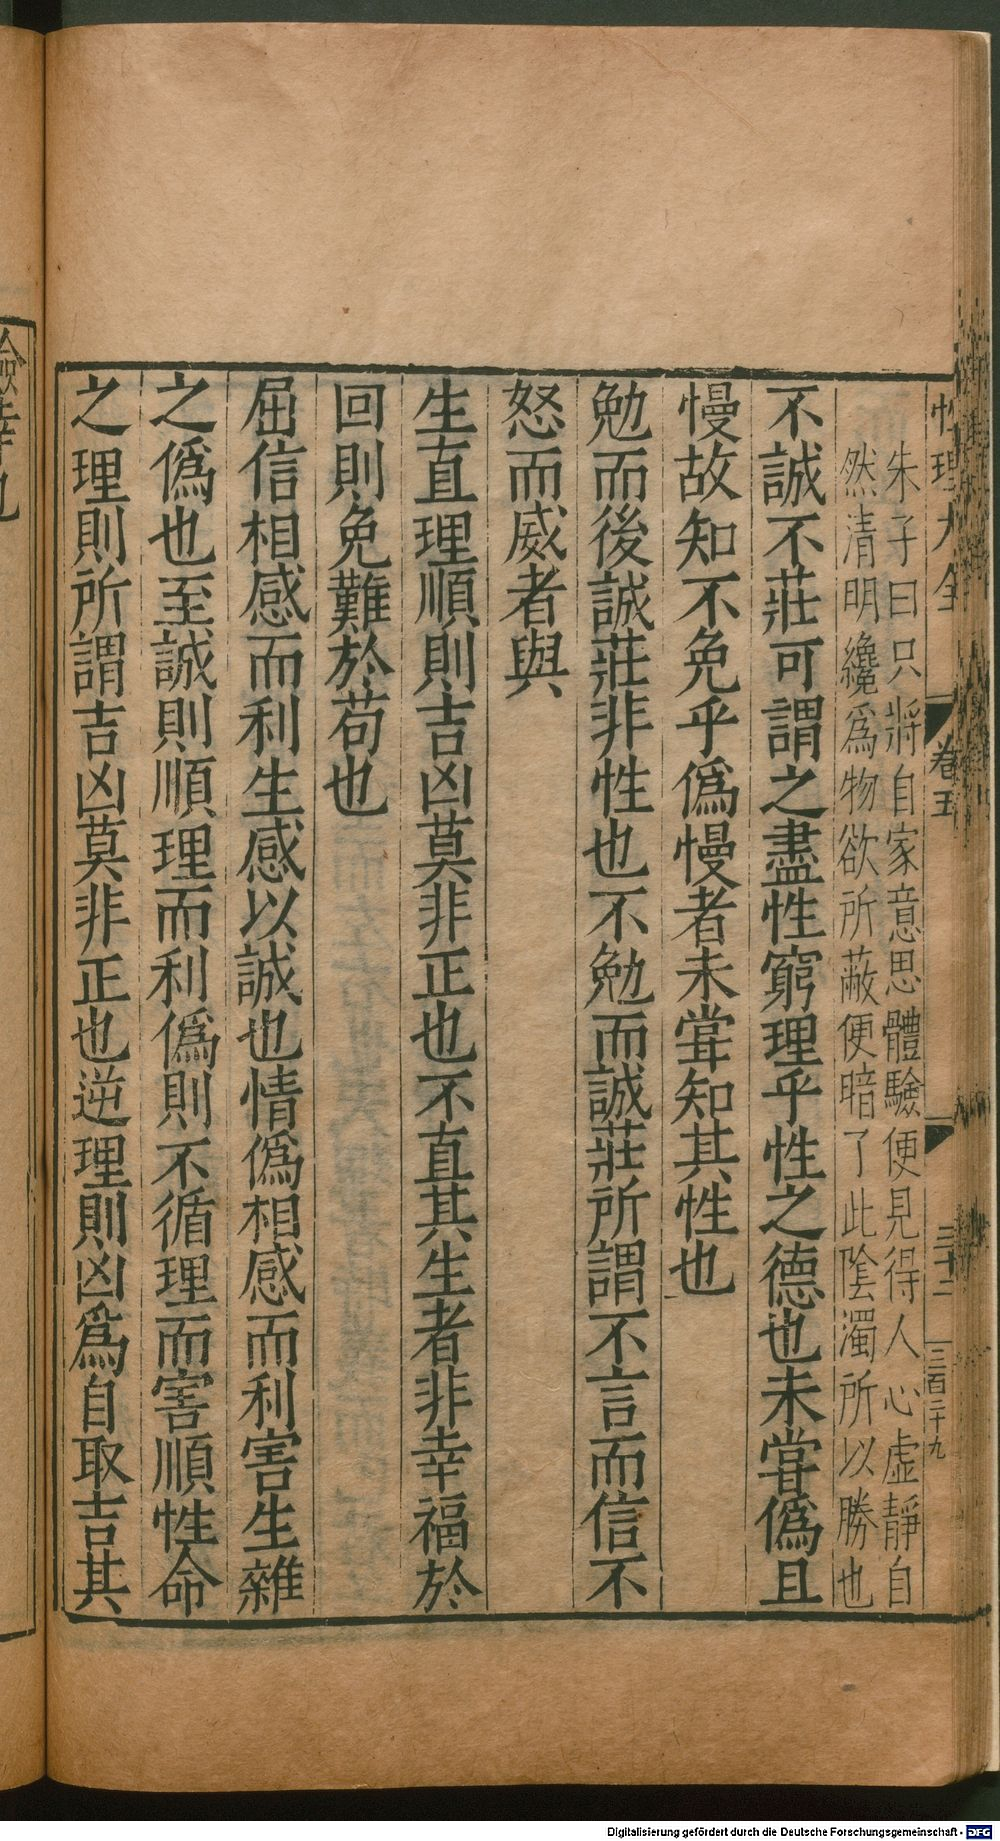 性理大全 卷五 三十二 三百二十九
朱子曰只將自家意思體驗便見得人心虛靜自
然清明纔爲物欲所蔽便暗了此陰濁所以勝也
不誠不莊可謂之盡性窮理乎性之德也未嘗僞且
慢故知不免乎僞慢者未嘗知其性也
勉而後誠莊非性也不勉而誠莊所謂不言而信不
怒而威者與
生直理順則吉凶莫非正也不直其生者非幸福於
回則免難於苟也
屈信相感而利生感以誠也情僞相感而利害生雜
之僞也至誠則順理而利僞則不循理而害順性命
之理則所謂吉凶莫非正也逆理則凶爲自取吉其
險幸也
Digitalisierung gefördert durch die Deutsche Forschungsgemeinschaft - DFG